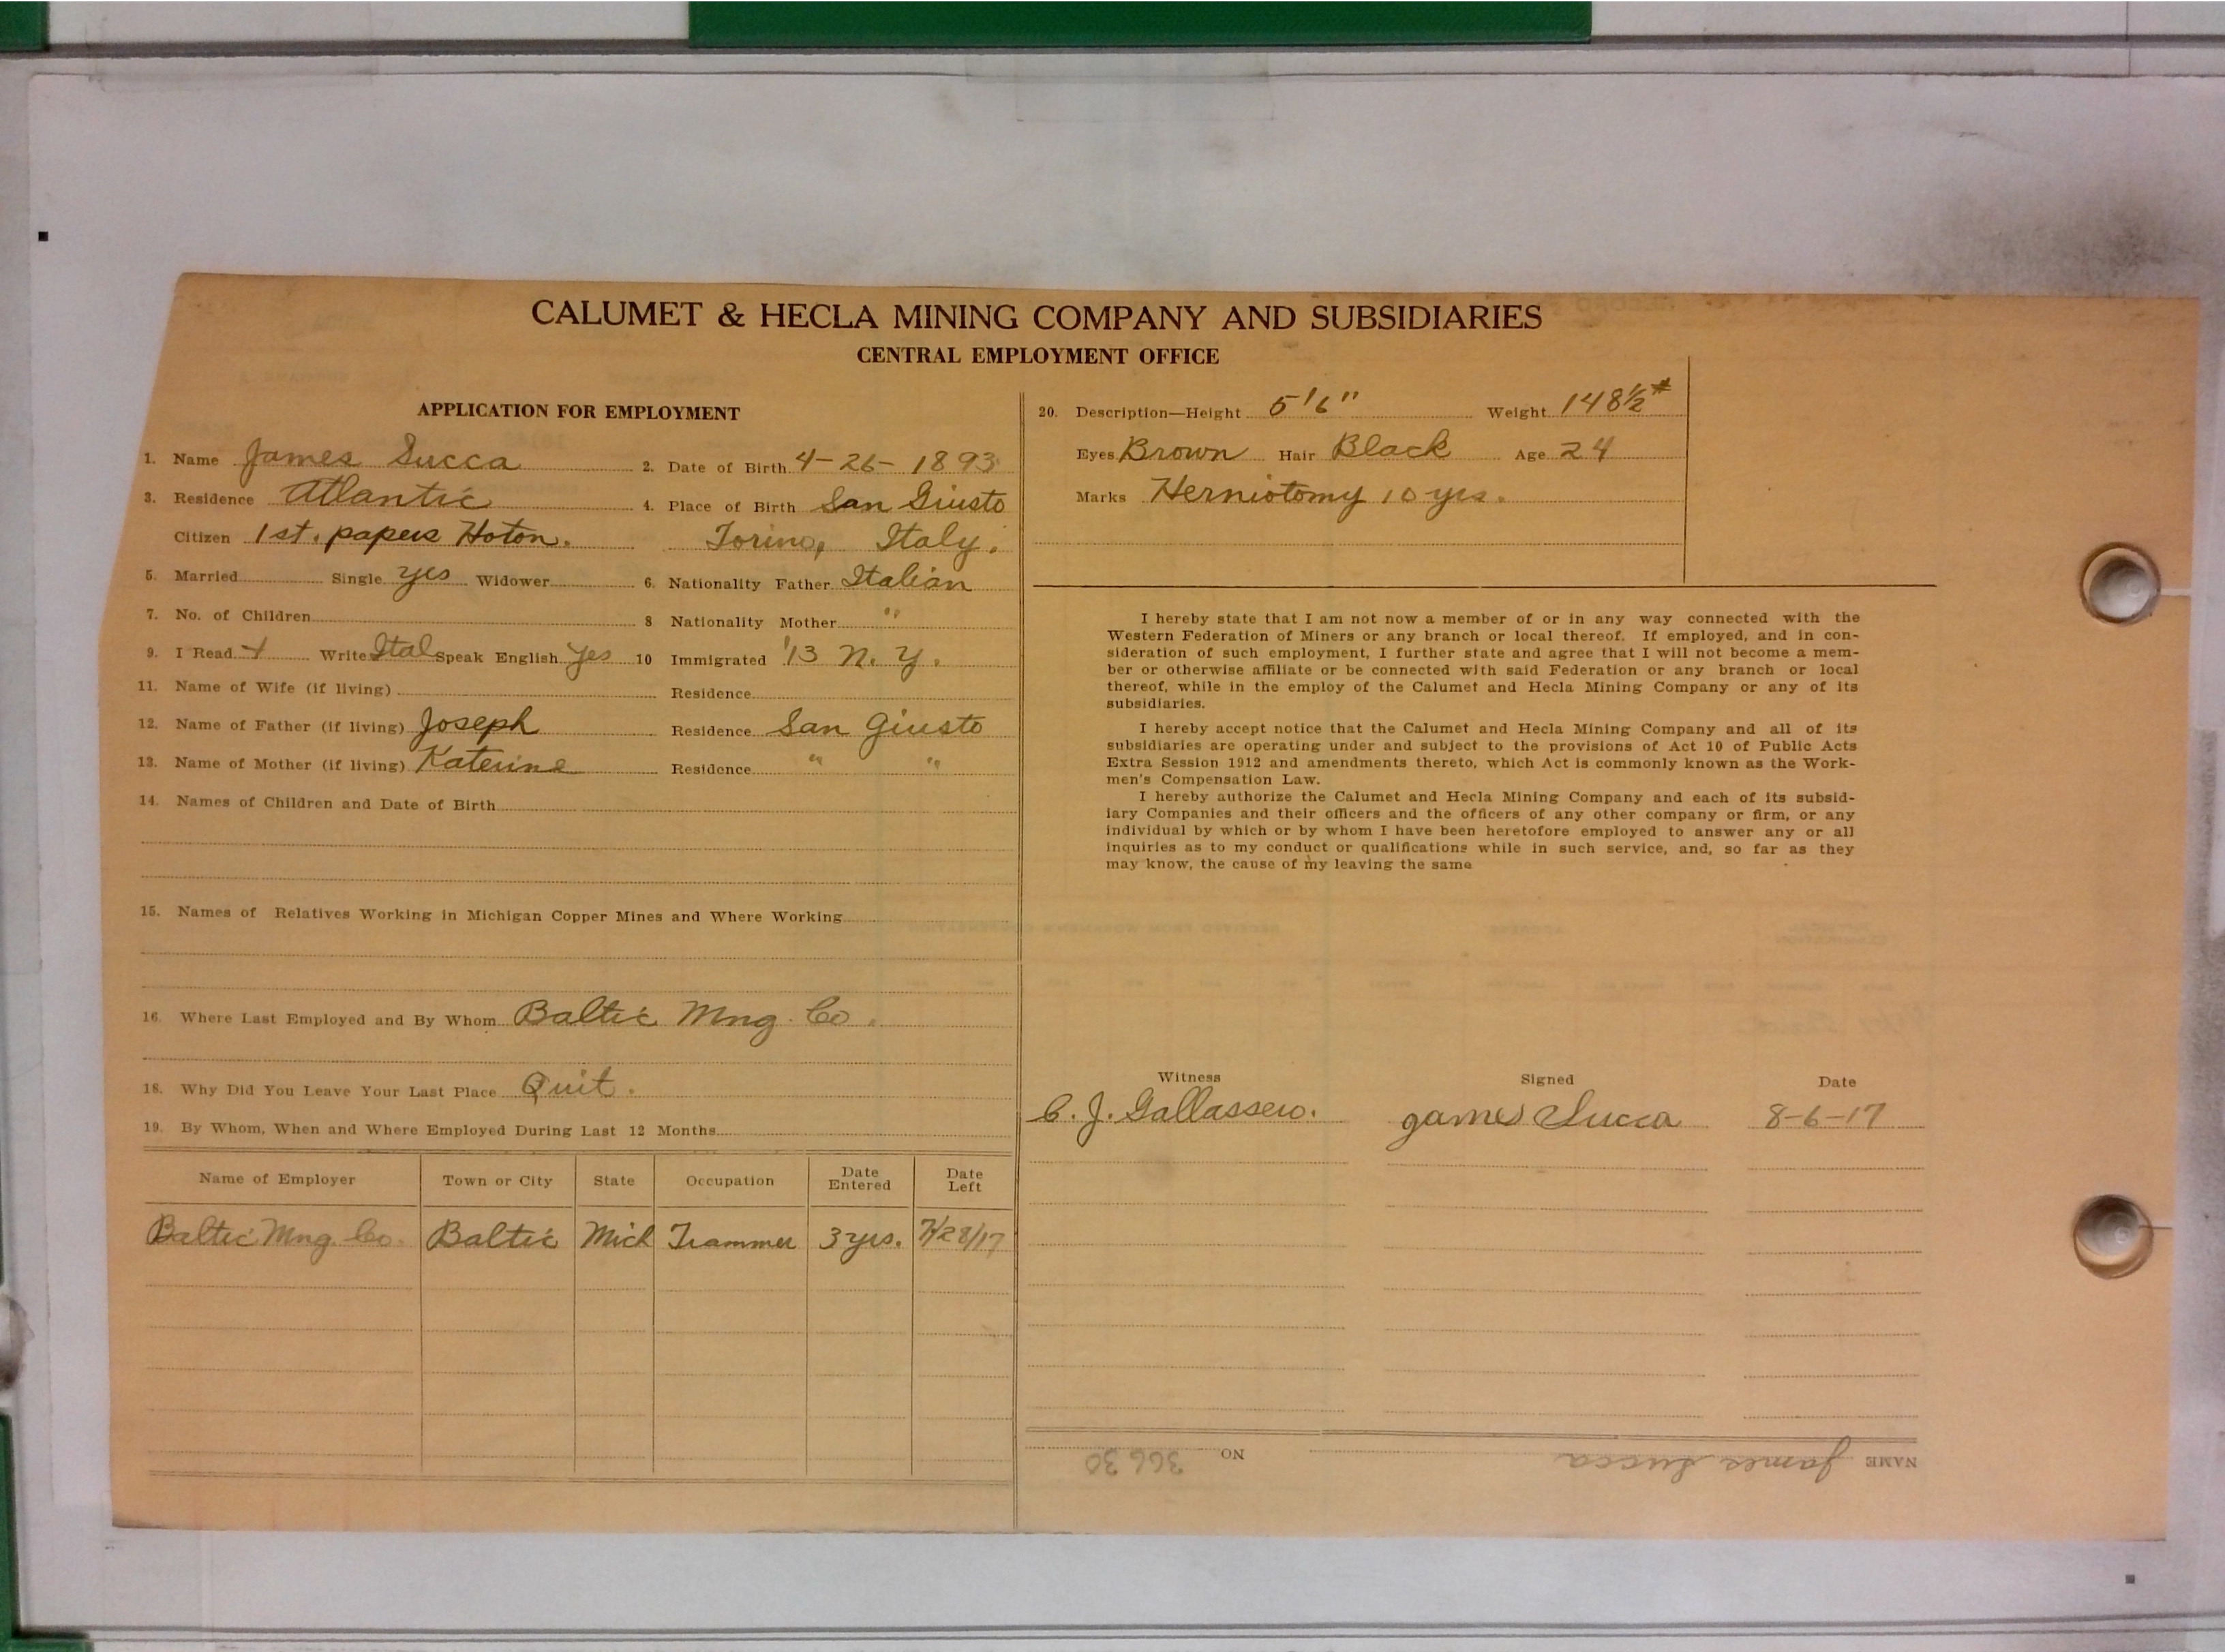 CALUMET & HECLA MINING COMPANY AND SUBSIDIARIES
CENTRAL EMPLOYMENT OFFICE
APPLICATION FOR EMPLOYMENT
1. Name James Succa 2. Date of Birth 4-26-1893
3. Residence Atlantic 4. Place of Birth San Giusto
Citizen 1st. papers Hoton. Torino, Italy.
5. Married Single yes Widower 6. Nationality Father Italian
7. No. of Children 8 Nationality Mother "
9. I Read + Write Ital Speak English yes 10 Immigrated '13 N.Y.
11. Name of Wife (if living) Residence
12. Name of Father (if living) Joseph Residence San Giusto
13. Name of Mother (if living) Katerine Residence " "
14. Names of Children and Date of Birth
15. Names of Relatives Working in Michigan Copper Mines and Where Working
16. Where Last Employed and By Whom Baltic Mng. Co.
18. Why Did You Leave Your Last Place Quit.
19. By Whom, When and Where Employed During Last 12 Months
Name of Employer Town or City State Occupation Date Entered Date Left
Baltic Mng. Co. Baltic Mich Trammer 3 yrs. 7/28/17
20. Description—Height 5'6" Weight 148½#
Eyes Brown Hair Black Age 24
Marks Herniotomy 10 yrs.
I hereby state that I am not now a member of or in any way connected with the
Western Federation of Miners or any branch or local thereof. If employed, and in con-
sideration of such employment, I further state and agree that I will not become a mem-
ber or otherwise affiliate or be connected with said Federation or any branch or local
thereof, while in the employ of the Calumet and Hecla Mining Company or any of its
subsidiaries.
I hereby accept notice that the Calumet and Hecla Mining Company and all of its
subsidiaries are operating under and subject to the provisions of Act 10 of Public Acts
Extra Session 1912 and amendments thereto, which Act is commonly known as the Work-
men's Compensation Law.
I hereby authorize the Calumet and Hecla Mining Company and each of its subsid-
iary Companies and their officers and the officers of any other company or firm, or any
individual by which or by whom I have been heretofore employed to answer any or all
inquiries as to my conduct or qualifications while in such service, and, so far as they
may know, the cause of my leaving the same
Witness Signed Date
C. J. Gallassero. James Succa 8-6-17
NAME James Succa NO 36630